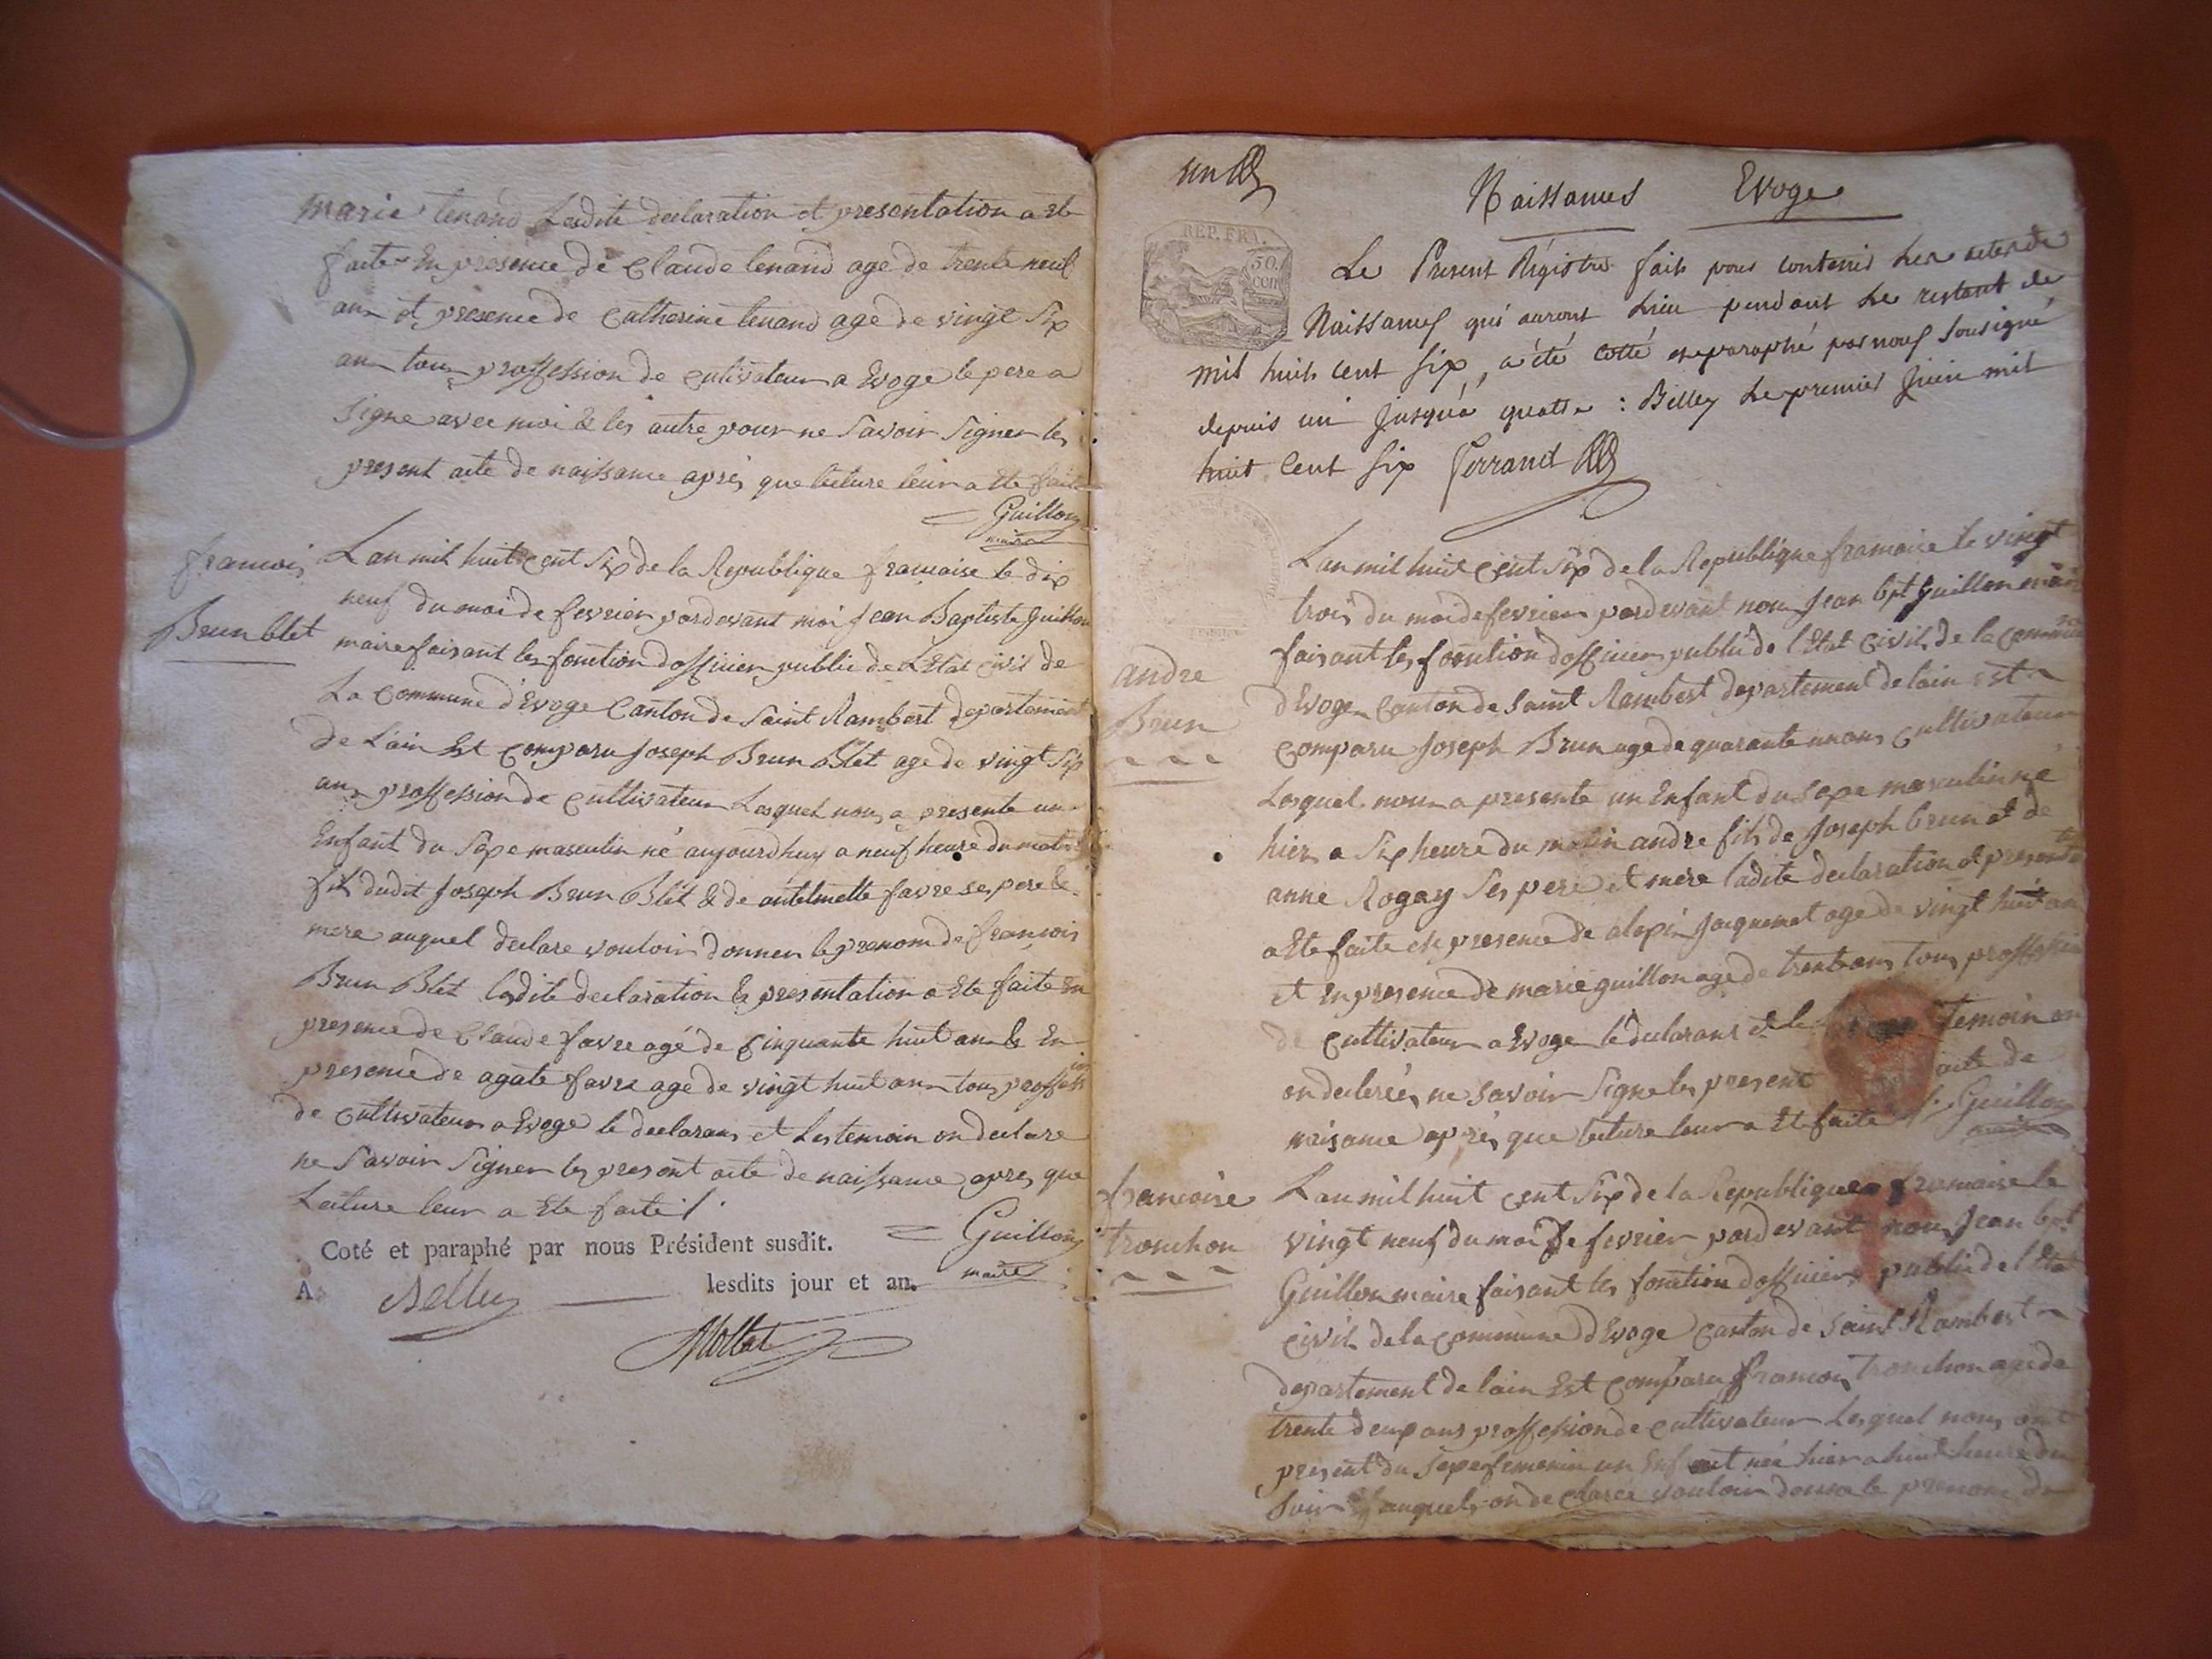 marie tenand Ladite declaration et presentation a ete
faite En presence de Claude tenand age de trente neuf
ans et presence de Catherine tenand age de vingt Six
ans tous proffession de cultivateur a Evoge le pere a
Signe avec moi & les autre pour ne Savoir Signer les
present acte de naissance aprés que lecture leur a Ete faite
Guillon
maire
francois
Brun blet
Lan mil huit cent Six de la Republique francaise le dix
neuf du moi de fevrier pardevant moi Jean Baptiste Guillon
maire faisant les fonction dofficier public de L'Etat Civil de
La Commune d'Evoge Canton de Saint Rambert departement
de L'ain Est Comparu Joseph Brun Blet age de vingt Six
ans proffession de cultivateur Lesquel nous a presente un
Enfant du Sexe masculin né aujourdhuy a neuf heure du matin
fils dudit Joseph Brun Blet & de antelmette favre ses pere &
mere auquel declare vouloir donner le prenom de francois
Brun Blet ladite declaration & presentation a Ete faite En
presence de Claude favre agé de Cinquante huit ans & En
presence de agate favre age de vingt huit ans tous proffession
de Cultivateur a Evoge le declarans et Les temoin on declare
ne Savoir Signer les present acte de naissance apres que
Lecture leur a Ete faite /.
Guillon
maire
Coté et paraphé par nous Président susdit.
A Belley lesdits jour et an.
Mollet
un
Naissances Evoge
REP. FRA.
50.
CEN
Le Present Régistre fait pour contenir les actes de
Naissances qui auront Lieu pendant le restant de
mil huit cent six, a été cotté et paraphé par nous sousigné
depuis un jusqu'à quatre : Belley le premier juin mil
huit cent six Ferrand
andre
Brun
Lan mil huit Cent Six de la Republique francaise le vingt
trois du moi de fevrier pardevant nous Jean bpt Guillon maire
faisant les fonction dofficier public de l'Etat Civil de la Commune
d'Evoge Canton de Saint Rambert departement de lain est
Comparu Joseph Brun age de quarante un ans Cultivateur
Lesquel nous a presente un Enfant du Sexe masculin né
hier a Six heure du matin andre fils de Joseph brun et de
anne Rogay Ses pere et mere ladite declaration et presentation
a Ete faite en presence de Jaquemet age de vingt huit ans
et En presence de marie guillon age de trente ans tous proffession
de Cultivateur a Evoge le declarans et le temoin on
on declarés ne Savoir Signe les present acte de
naisance aprés que lecture leur a Ete faite /. Guillon
maire
francoise
tronchon
Lan mil huit Cent Six de la Republique francaise le
vingt neuf du moi de fevrier pardevant nous Jean bpt
Guillon maire faisant les fonction dofficier public de l'Etat
Civil de la Commune d'Evoge Canton de Saint Rambert
departement de lain Est Comparu francois tronchon age de
trente deux ans proffession de Cultivateur Lesquel nous ont
present du Sexe femenin un Enfant née hier a huit heure du
Soir auquel on declarer vouloir donne le prenom de